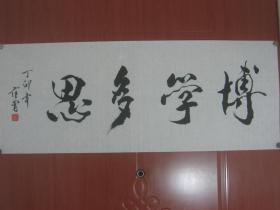 博学多思
丁卯年